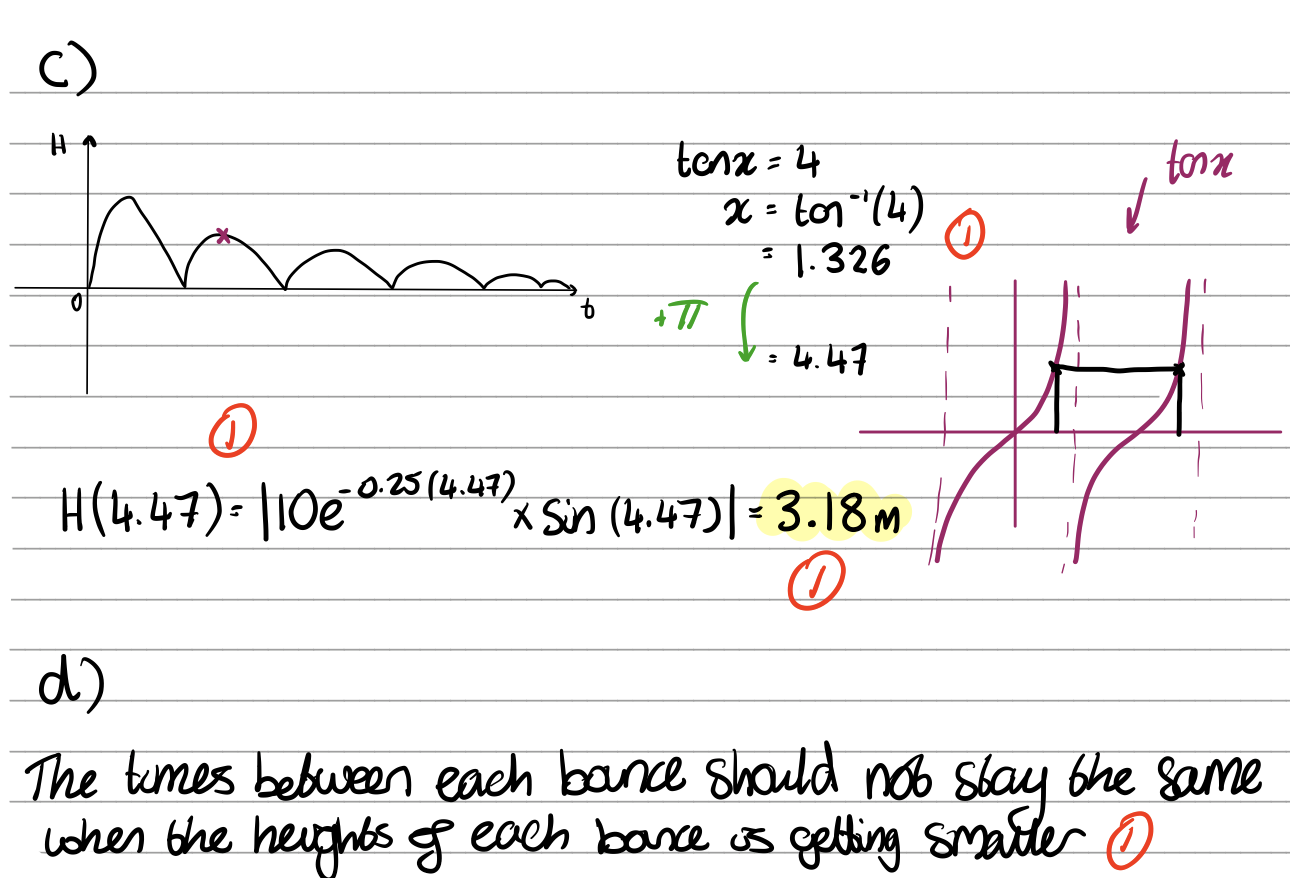 c)
H
0
t
tanx = 4
x = tan⁻¹(4)
= 1.326
①
+π
= 4.47
tanx
①
H(4.47) = |10e^-0.25(4.47) × sin (4.47)| = 3.18m
①
d)
The times between each bounce should not stay the same
when the heights of each bounce is getting smaller ①